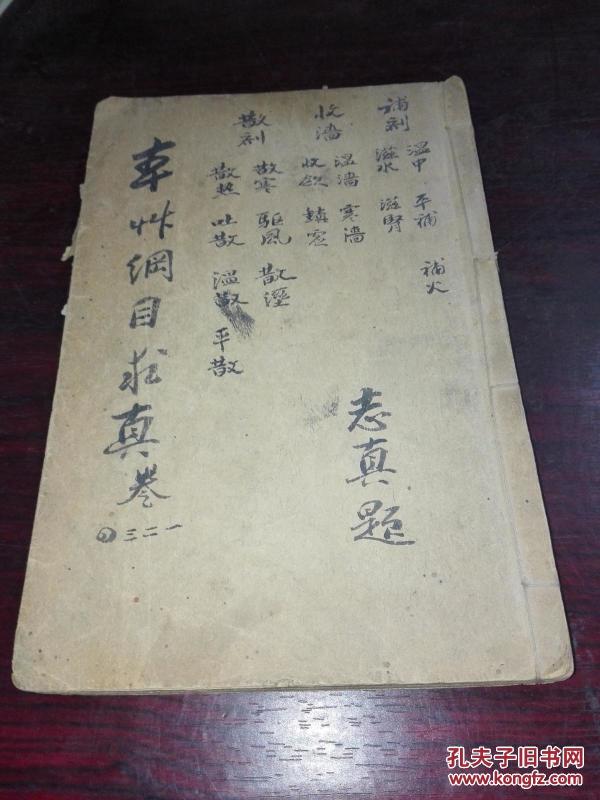 補剤
溫中 平補 補火
滋水 滋腎
收濇
溫濇 寒濇
收歛 鎮虛
散剤
散寒 駆風 散溼
散熱 吐散 溫散 平散
志真題
本艸綱目求真卷
一二三四
孔夫子旧书网
www.kongfz.com